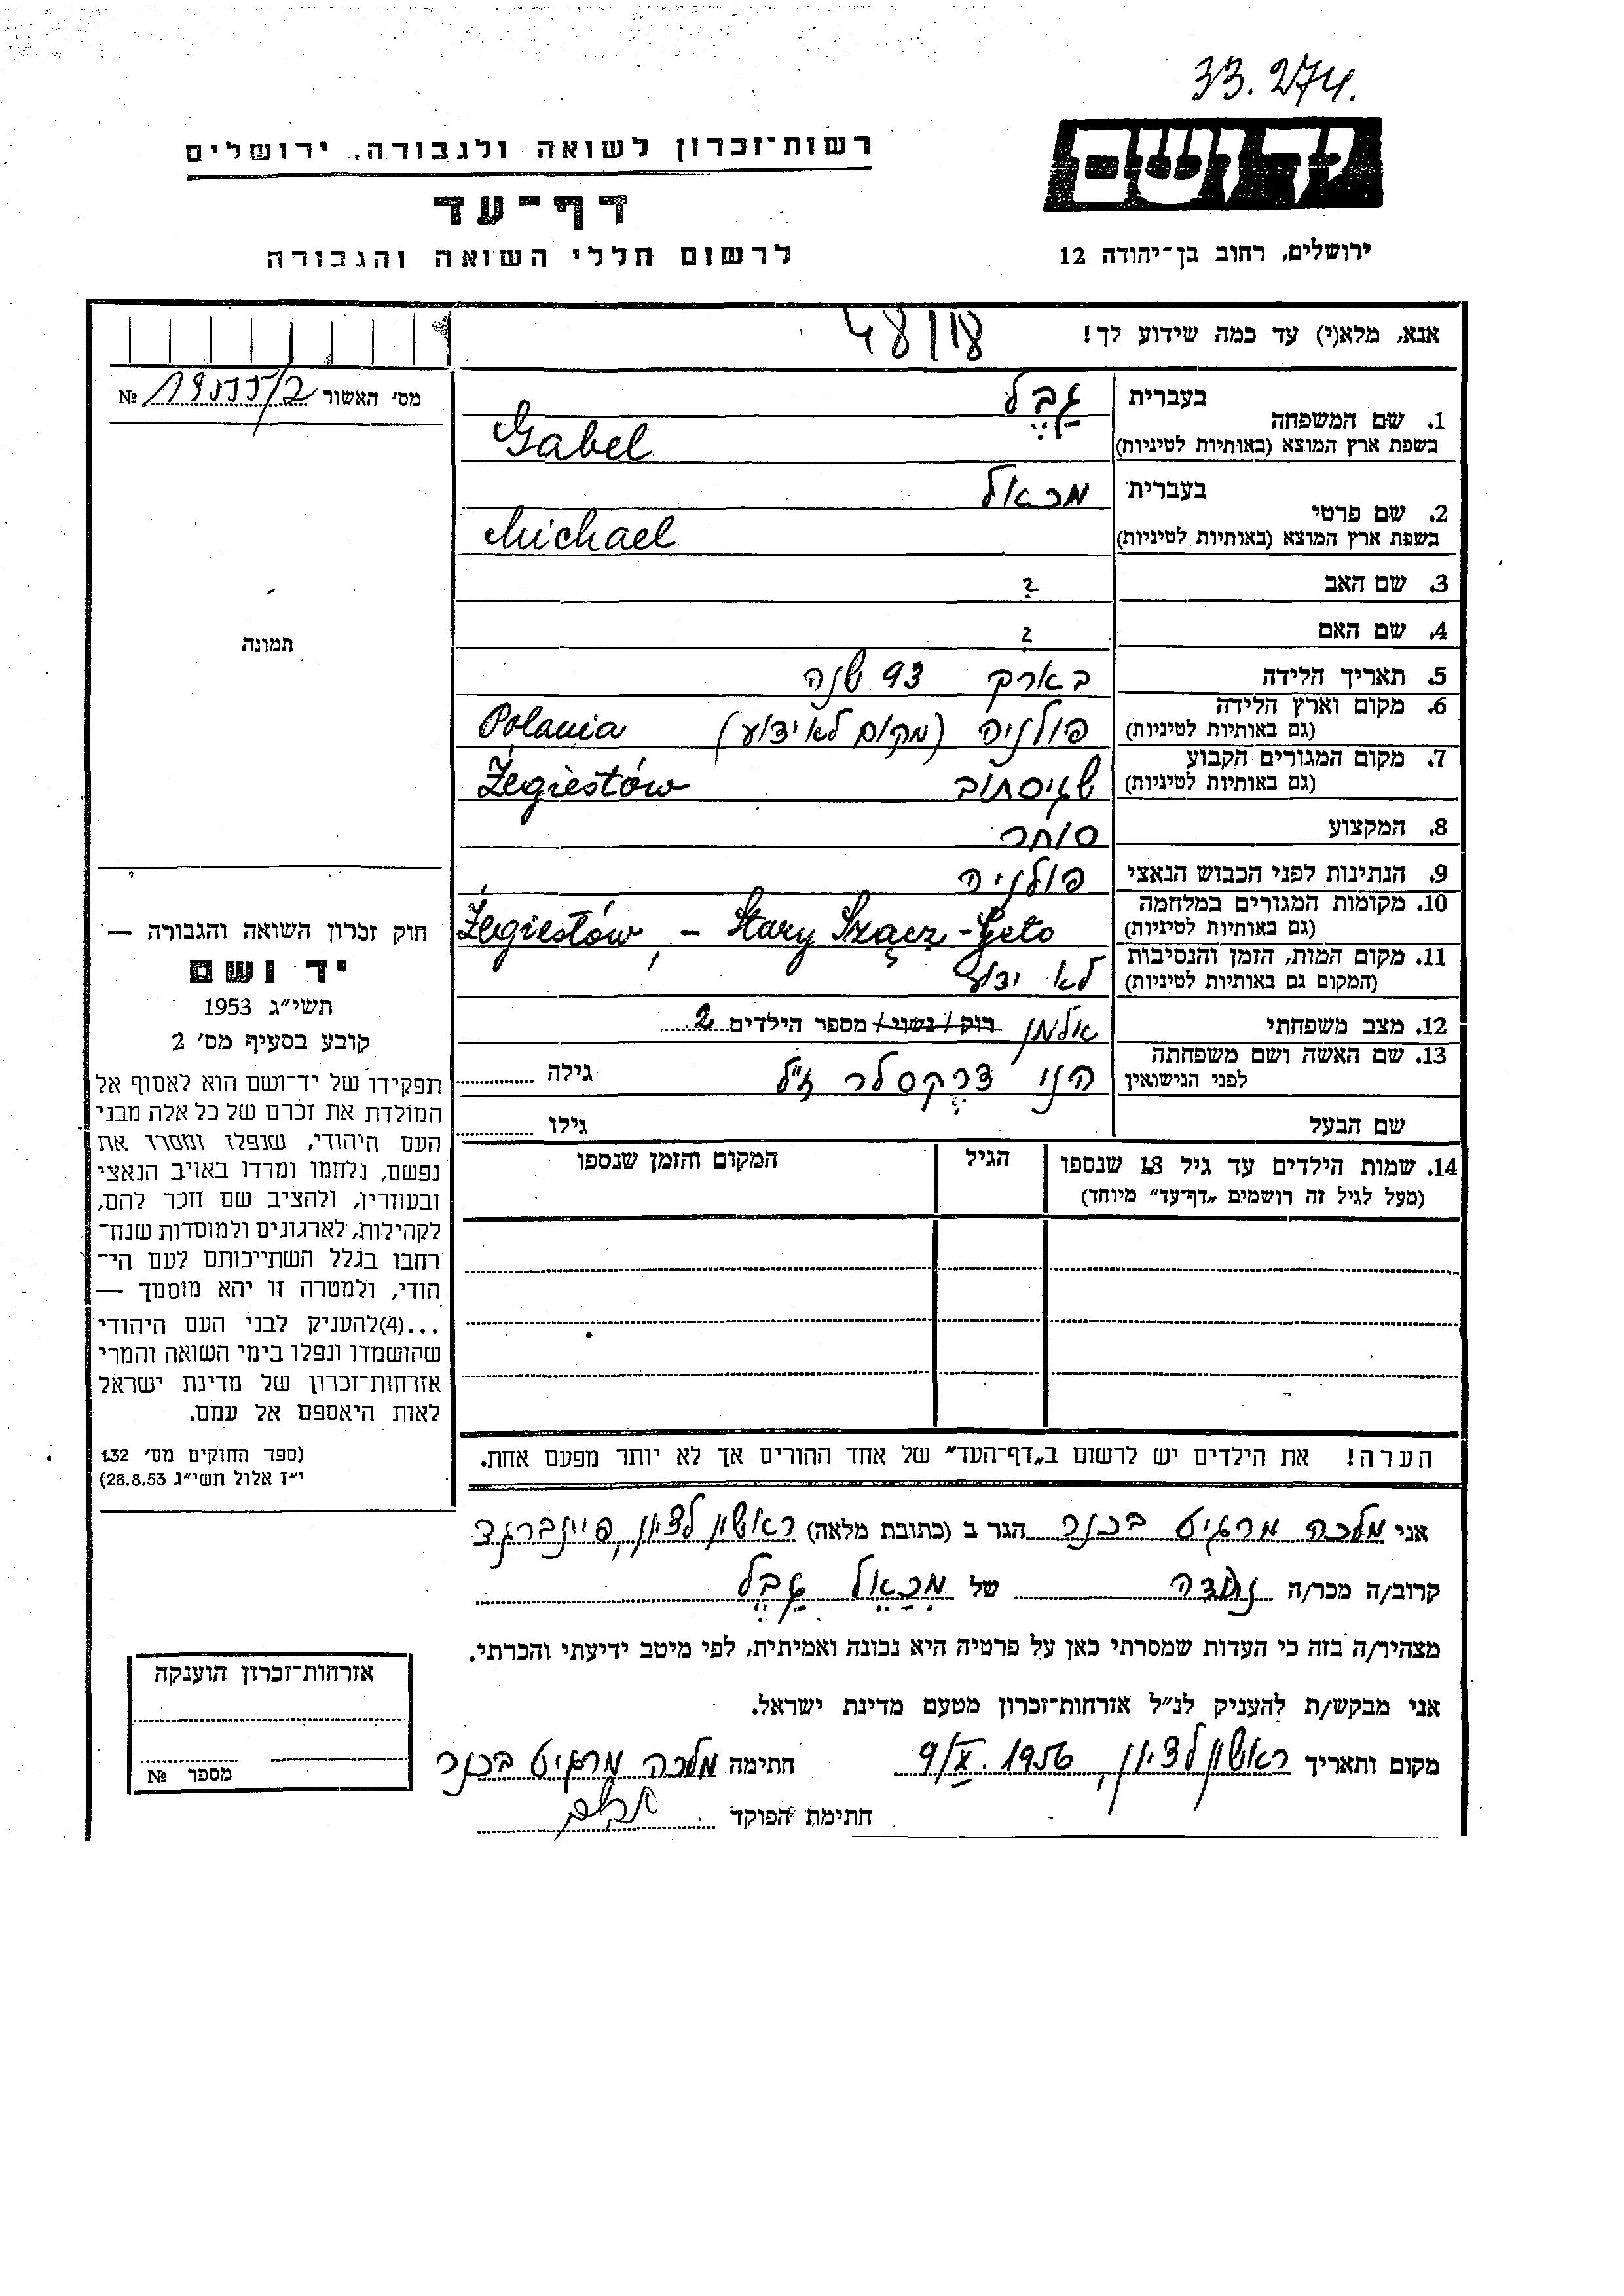 33.274.
יד ושם
רשות־זכרון לשואה ולגבורה, ירושלים
דף־עד
לרשום חללי השואה והגבורה
ירושלים, רחוב בן־יהודה 12
אנא, מלא(י) עד כמה שידוע לך!
מס׳ האשור №
1. שם המשפחה בעברית גבל
בשפת ארץ המוצא (באותיות לטיניות) Gabel
2. שם פרטי בעברית מכאל
בשפת ארץ המוצא (באותיות לטיניות) Michael
3. שם האב ?
4. שם האם ?
5. תאריך הלידה בארך 93 שנה
6. מקום וארץ הלידה (גם באותיות לטיניות) פולניה (מקום לא ידוע) Polania
7. מקום המגורים הקבוע (גם באותיות לטיניות) שגיסתוב Żegiestów
8. המקצוע סוחר
9. הנתינות לפני הכבוש הנאצי פולניה
10. מקומות המגורים במלחמה (גם באותיות לטיניות) Żegiestów, - Stary Szącz - Geto
11. מקום המות, הזמן והנסיבות (המקום גם באותיות לטיניות) לא ידוע
12. מצב משפחתי אלמן רוק / נשוי / מספר הילדים 2
13. שם האשה ושם משפחתה לפני הנישואין הני דרקסלר ז"ל גילה
שם הבעל גילו
14. שמות הילדים עד גיל 18 שנספו הגיל המקום והזמן שנספו
(מעל לגיל זה רושמים „דף־עד" מיוחד)
הערה! את הילדים יש לרשום ב„דף־העד" של אחד ההורים אך לא יותר מפעם אחת.
תמונה
חוק זכרון השואה והגבורה —
יד ושם
תשי"ג 1953
קובע בסעיף מס׳ 2
תפקידו של יד־ושם הוא לאסוף אל
המולדת את זכרם של כל אלה מבני
העם היהודי, שנפלו ומסרו את
נפשם, נלחמו ומרדו באויב הנאצי
ובעוזריו, ולהציב שם וזכר להם,
לקהילות, לארגונים ולמוסדות שנח־
רחבו בגלל השתייכותם לעם הי־
הודי, ולמטרה זו יהא מוסמך —
...(4)להעניק לבני העם היהודי
שהושמדו ונפלו בימי השואה והמרי
אזרחות־זכרון של מדינת ישראל
לאות היאספם אל עמם.
(ספר החוקים מס׳ 132
י"ז אלול תשי"ג 28.8.53)
אני מלכה מרגיט בכנר הגר ב (כתובת מלאה) ראשון לציון, פיינברג
קרוב/ה מכר/ה נכדה של מכאל גבל
מצהיר/ה בזה כי העדות שמסרתי כאן על פרטיה היא נכונה ואמיתית, לפי מיטב ידיעתי והכרתי.
אני מבקש/ת להעניק לנ"ל אזרחות־זכרון מטעם מדינת ישראל.
מקום ותאריך ראשון לציון, 9/X. 1956 חתימה מלכה מרגיט בכנר
חתימת הפוקד
אזרחות־זכרון הוענקה
מספר №